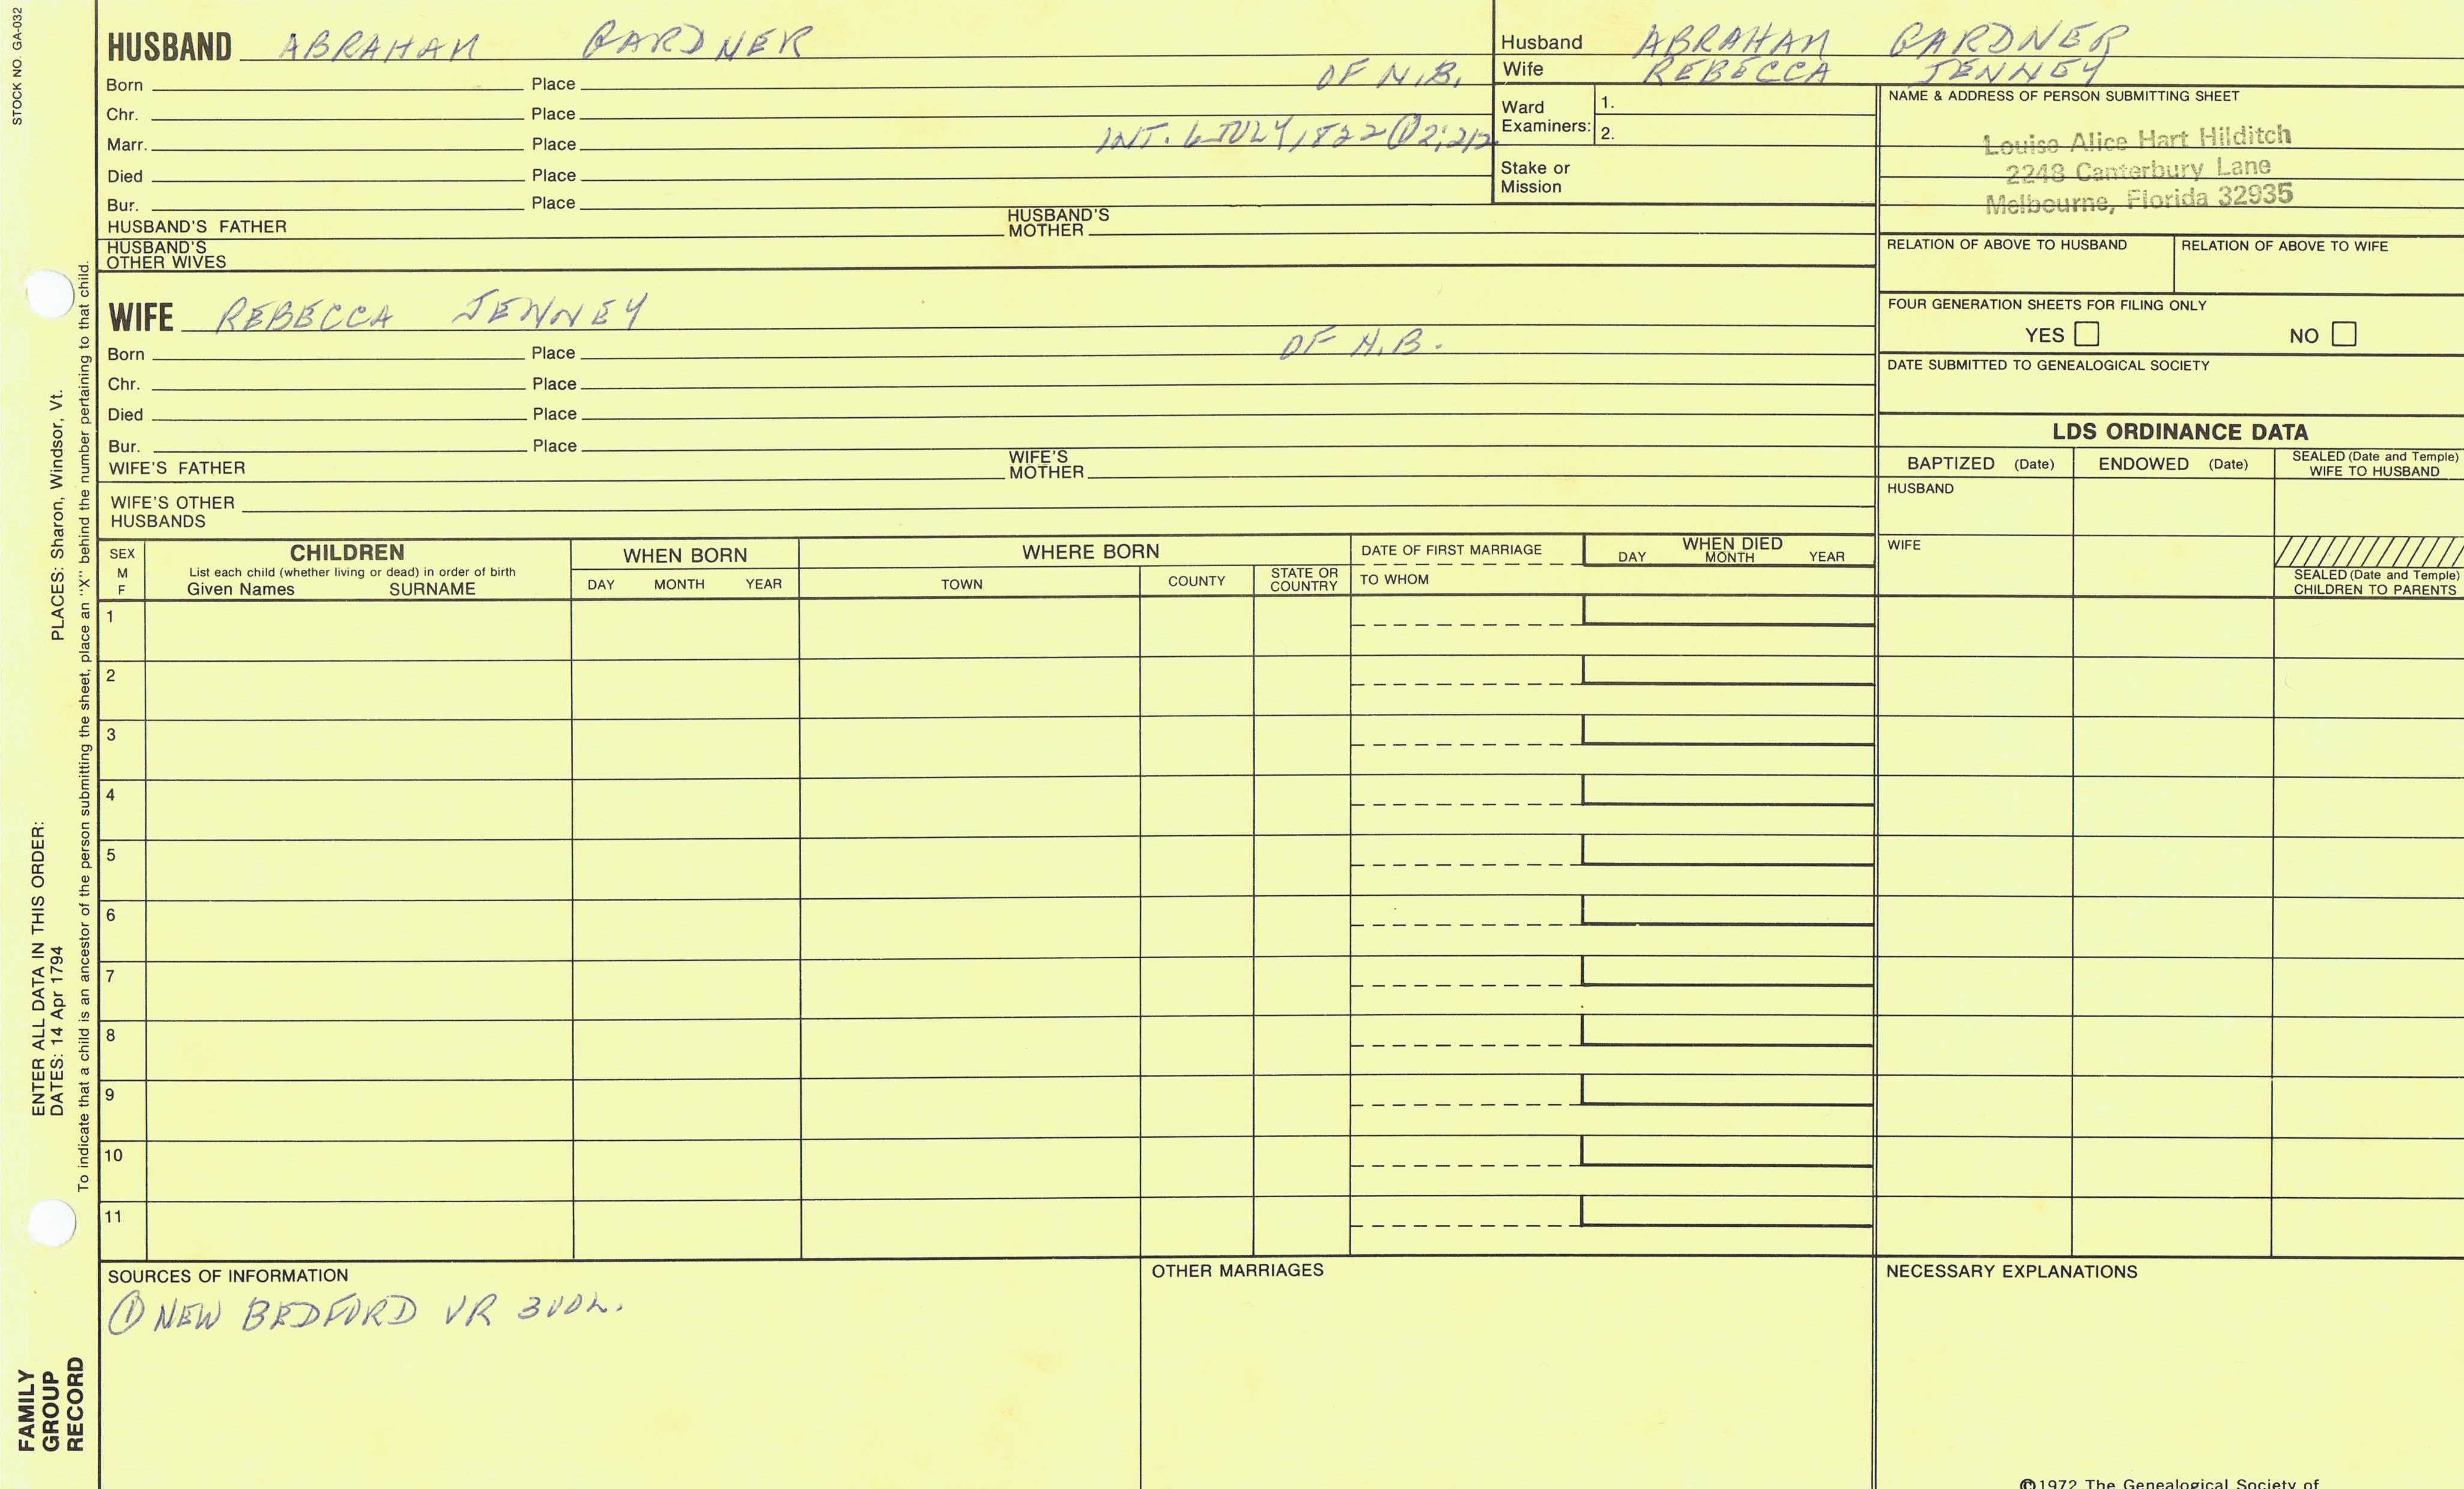 STOCK NO. GA-032
HUSBAND ABRAHAM GARDNER
Born Place OF N.B.
Chr. Place
Marr. Place INT. 6 JULY 1822 ① 2:212
Died Place
Bur. Place
HUSBAND'S FATHER HUSBAND'S MOTHER
HUSBAND'S OTHER WIVES
Husband ABRAHAM GARDNER
Wife REBECCA JENNEY
Ward Examiners: 1.
2.
Stake or Mission
NAME & ADDRESS OF PERSON SUBMITTING SHEET
Louise Alice Hart Hilditch
2248 Canterbury Lane
Melbourne, Florida 32935
RELATION OF ABOVE TO HUSBAND RELATION OF ABOVE TO WIFE
FOUR GENERATION SHEETS FOR FILING ONLY
YES NO
DATE SUBMITTED TO GENEALOGICAL SOCIETY
WIFE REBECCA JENNEY
Born Place OF N.B.
Chr. Place
Died Place
Bur. Place
WIFE'S FATHER WIFE'S MOTHER
WIFE'S OTHER HUSBANDS
LDS ORDINANCE DATA
BAPTIZED (Date) ENDOWED (Date) SEALED (Date and Temple) WIFE TO HUSBAND
HUSBAND
WIFE
SEALED (Date and Temple) CHILDREN TO PARENTS
SEX M F
CHILDREN
List each child (whether living or dead) in order of birth
Given Names SURNAME
WHEN BORN
DAY MONTH YEAR
WHERE BORN
TOWN COUNTY STATE OR COUNTRY
DATE OF FIRST MARRIAGE
TO WHOM
WHEN DIED
DAY MONTH YEAR
1
2
3
4
5
6
7
8
9
10
11
SOURCES OF INFORMATION
① NEW BEDFORD VR 3 VOL.
OTHER MARRIAGES
NECESSARY EXPLANATIONS
©1972 The Genealogical Society of
ENTER ALL DATA IN THIS ORDER:
DATES: 14 Apr 1794 PLACES: Sharon, Windsor, Vt.
To indicate that a child is an ancestor of the person submitting the sheet, place an "X" behind the number pertaining to that child.
FAMILY
GROUP
RECORD